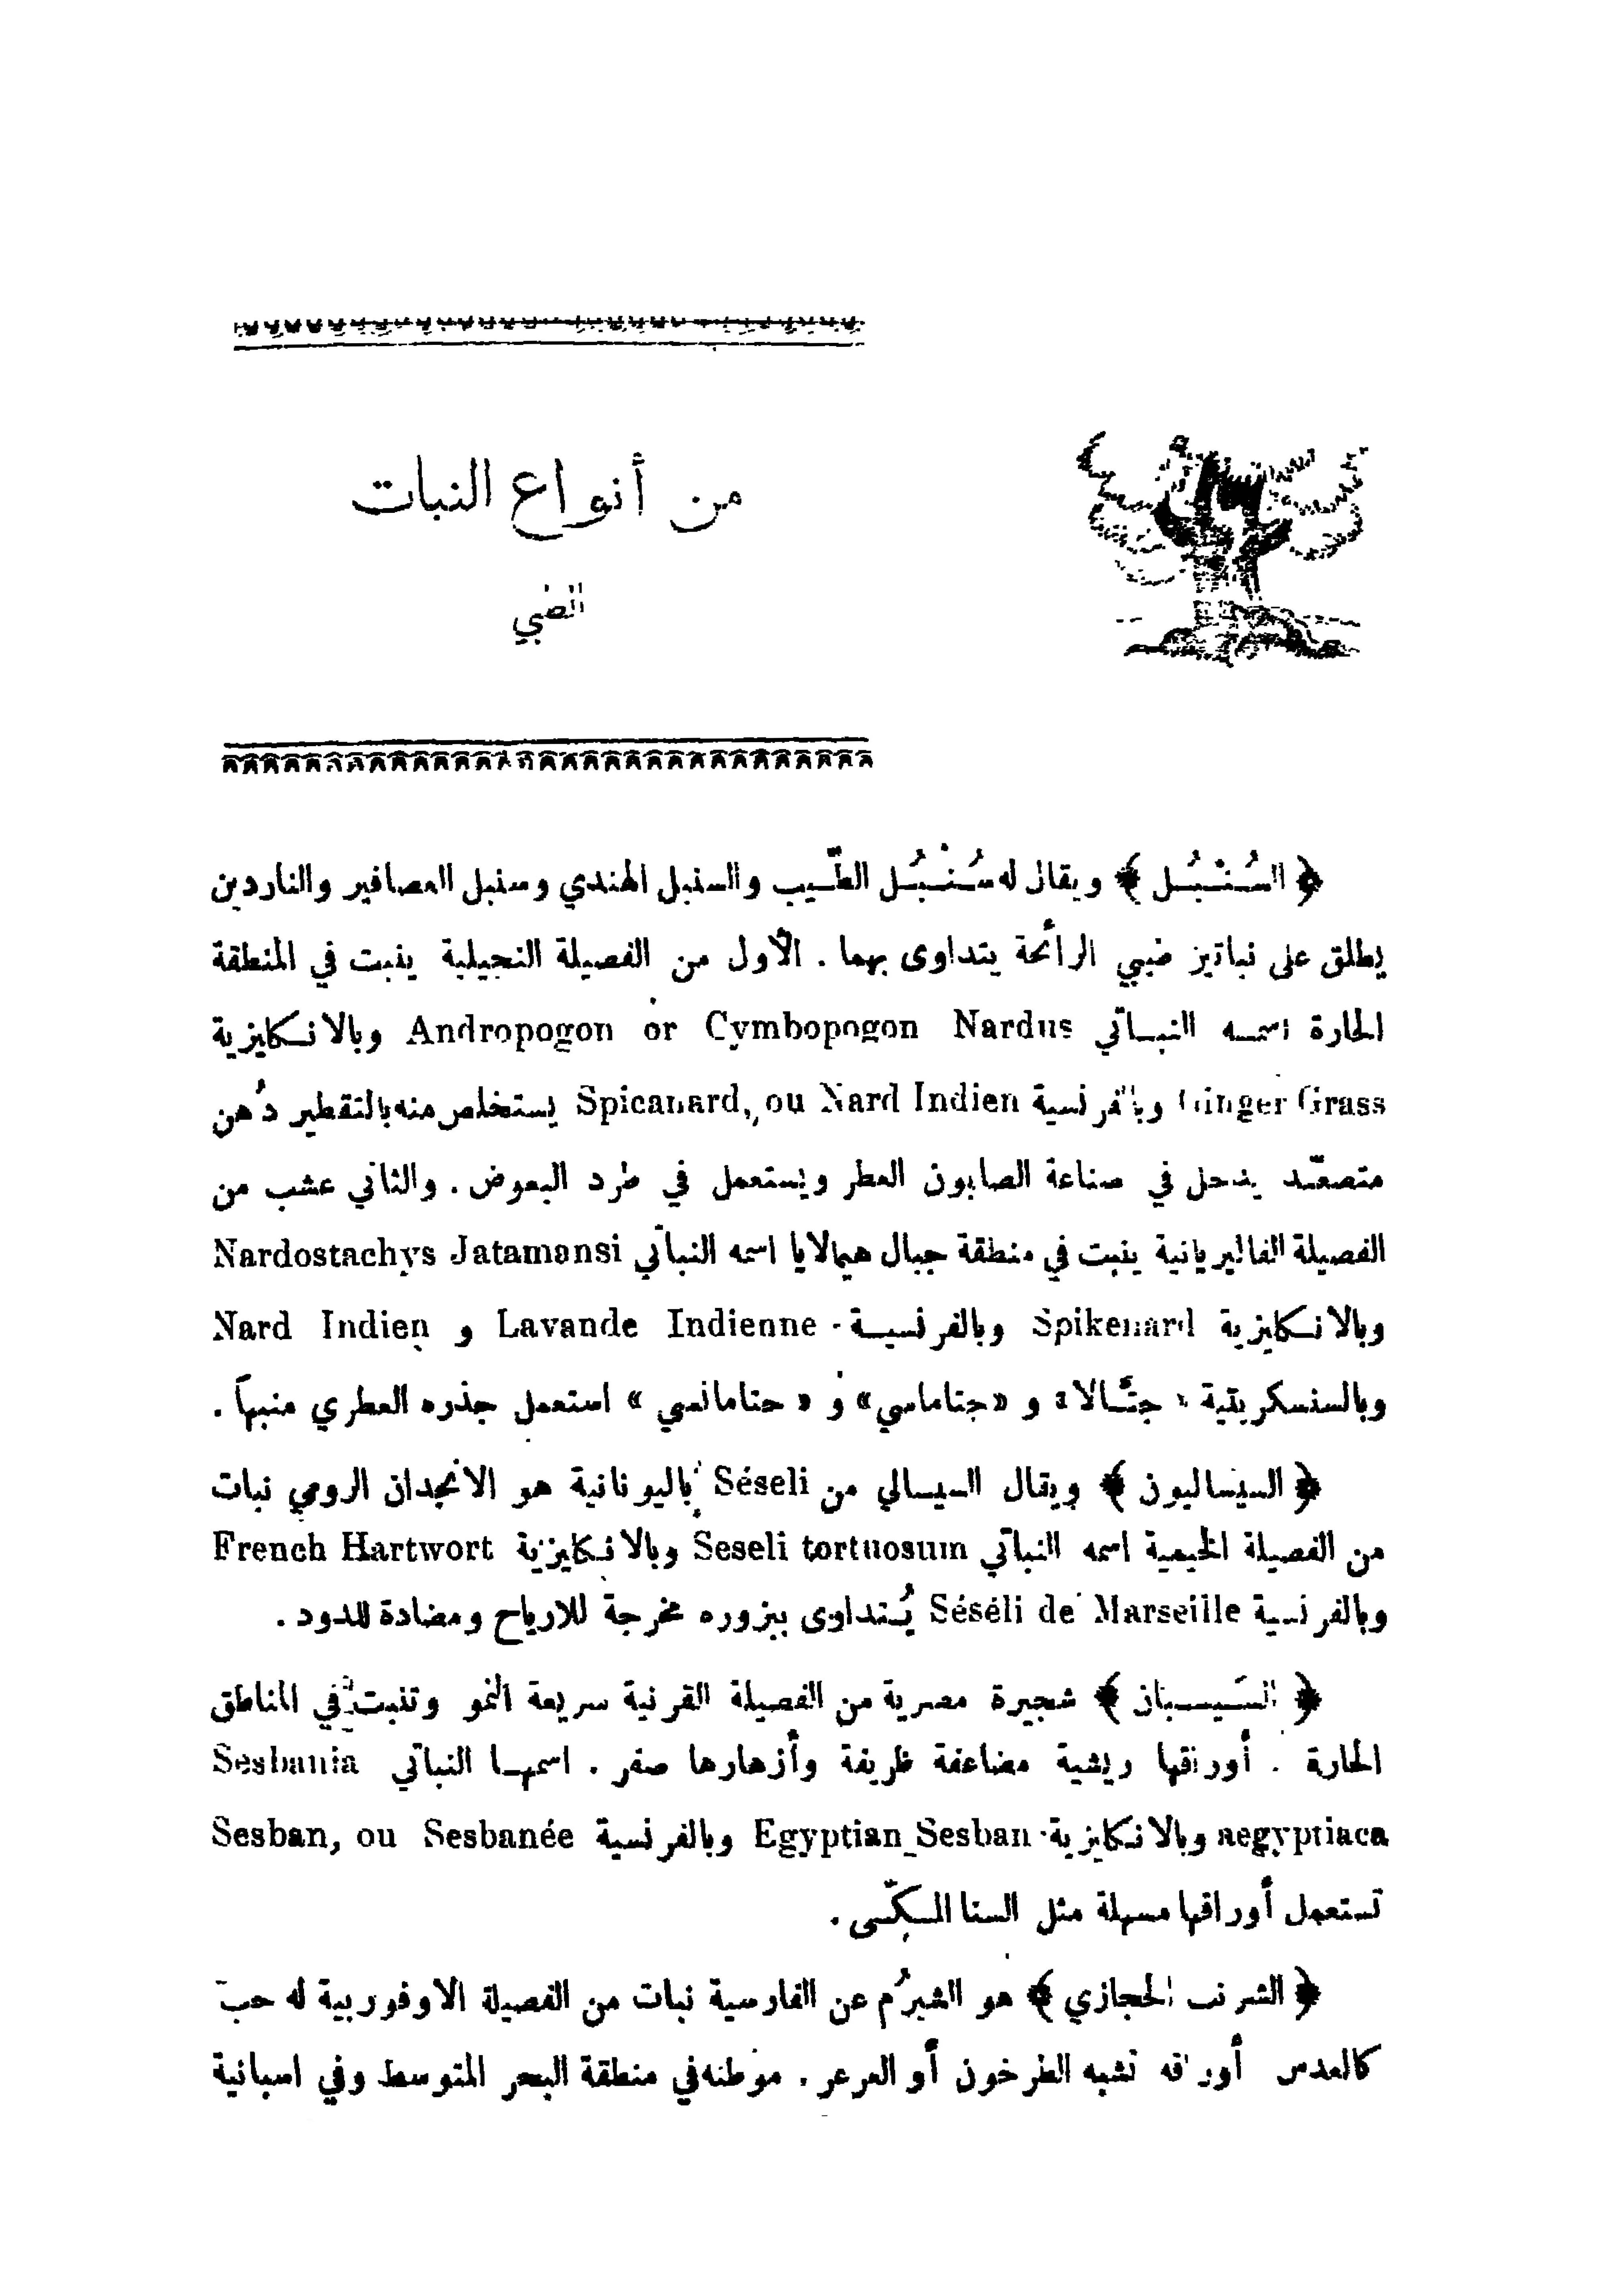 من أنواع النبات
الطبي
﴿ السُنْبُل ﴾ ويقال له سُنْبُل الطّيب والسنبل الهندي وسنبل العصافير والناردين
يطلق على نباتين طبيي الرائحة يتداوى بهما . الأول من الفصيلة النجيلية ينبت في المنطقة
الحارة اسمه النباتي Andropogon or Cymbopogon Nardus وبالانكليزية
Ginger Grass وبالفرنسية Spicanard, ou Nard Indien يستخلص منه بالتقطير دُهن
متصعّد يدخل في صناعة الصابون العطر ويستعمل في طرد البعوض . والثاني عشب من
الفصيلة الفاليريانية ينبت في منطقة جبال هيمالايا اسمه النباتي Nardostachys Jatamansi
وبالانكليزية Spikenard وبالفرنسية Lavande Indienne و Nard Indien
وبالسنسكريتية « جتّالا » و «جتاماسي» و « حتامانسي » استعمل جذره العطري منبهاً .
﴿ السيساليون ﴾ ويقال السيسالي من Séseli باليونانية هو الانجدان الرومي نبات
من الفصيلة الخيمية اسمه النباتي Seseli tortuosum وبالانكليزية French Hartwort
وبالفرنسية Séséli de Marseille يُتداوى ببزوره مخرجة للارياح ومضادة للدود .
﴿ السَيسبان ﴾ شجيرة مصرية من الفصيلة القرنية سريعة النمو وتنبت في المناطق
الحارة . أوراقها ريشية مضاعفة ظريفة وأزهارها صفر . اسمها النباتي Sesbania
aegyptiaca وبالانكليزية Egyptian Sesban وبالفرنسية Sesban, ou Sesbanée
تستعمل أوراقها مسهلة مثل السنا المكّى .
﴿ الشرنب الحجازي ﴾ هو الشبرُم عن الفارسية نبات من الفصيلة الاوفوربية له حب
كالعدس أوراقه تشبه الطرخون أو العرعر . موطنه في منطقة البحر المتوسط وفي اسبانية